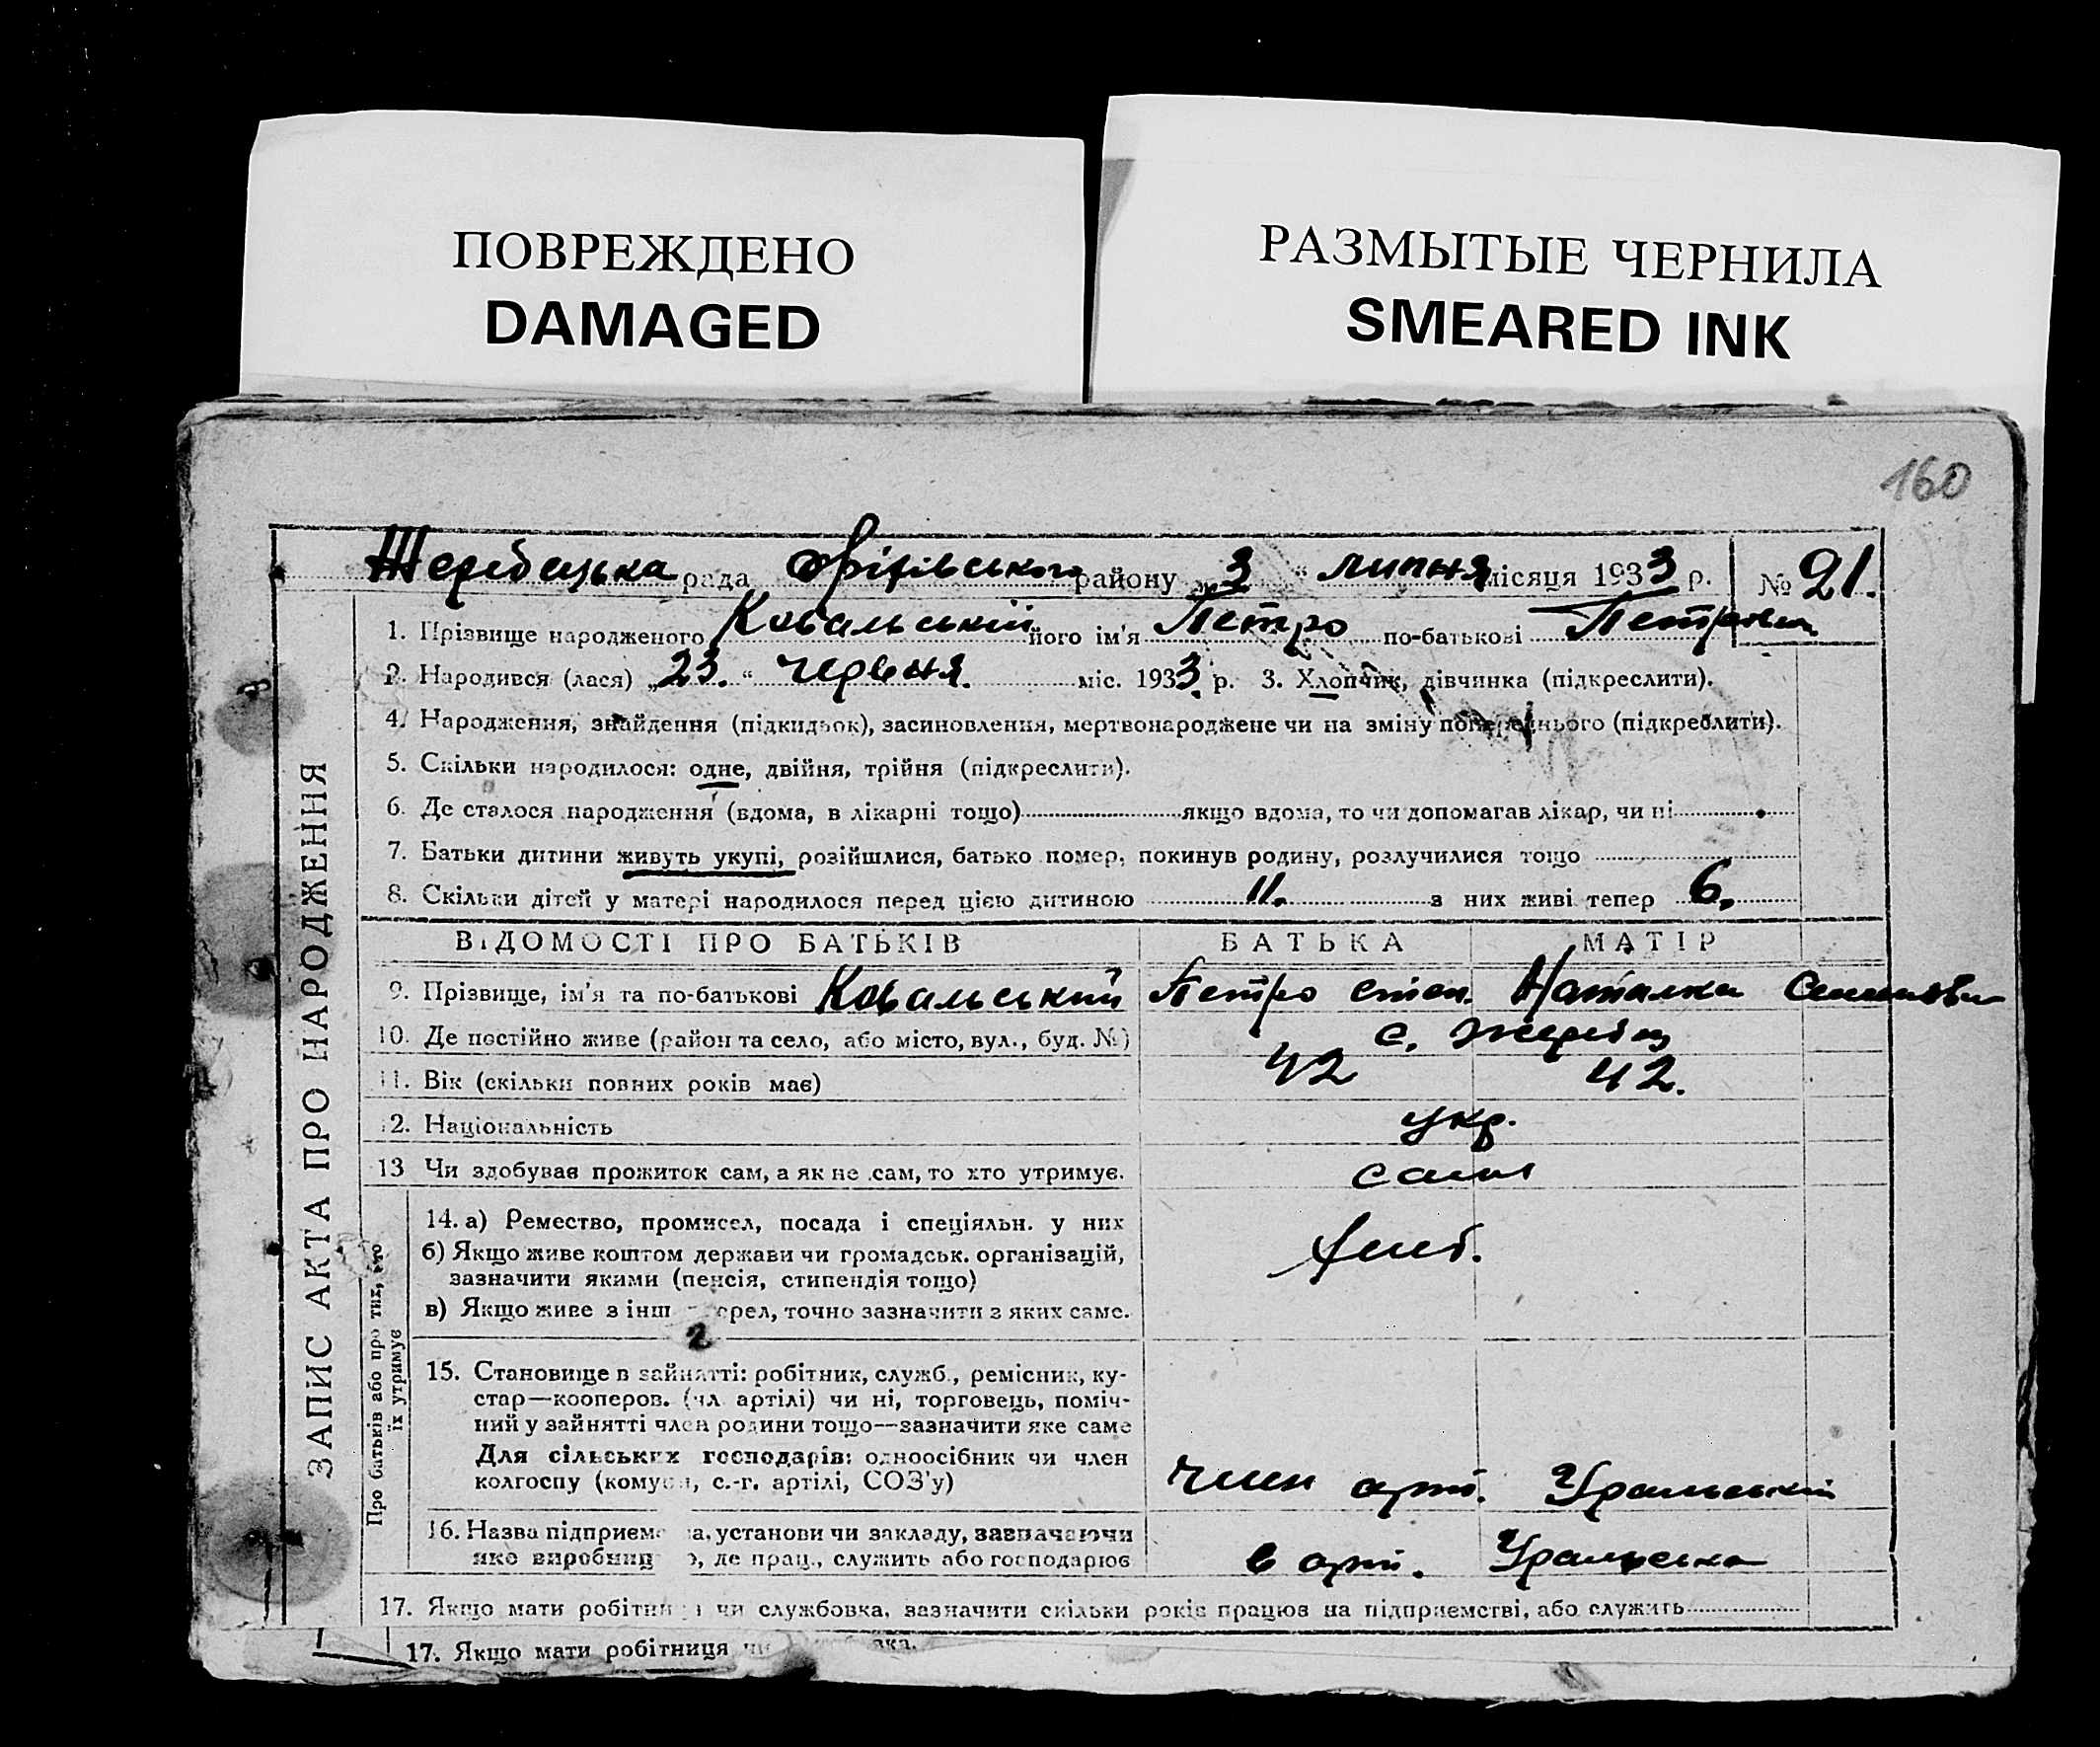 ПОВРЕЖДЕНО
DAMAGED
РАЗМЫТЫЕ ЧЕРНИЛА
SMEARED INK
160
Жеребецька рада Оріхівського району „3“ липня місяця 1933 р. № 21.
1. Прізвище народженого Ковальський його ім'я Петро по-батькові Петрович
2. Народився (лася) „23.“ червня. міс. 1933 р. 3. Хлопчик, дівчинка (підкреслити).
4. Народження, знайдення (підкидьок), засиновлення, мертвонароджене чи на зміну попереднього (підкреслити).
5. Скільки народилося: одне, двійня, трійня (підкреслити).
6. Де сталося народження (вдома, в лікарні тощо) якщо вдома, то чи допомагав лікар, чи ні
7. Батьки дитини живуть укупі, розійшлися, батько помер, покинув родину, розлучилися тощо
8. Скільки дітей у матері народилося перед цією дитиною 11. з них живі тепер 6.
ВІДОМОСТІ ПРО БАТЬКІВ БАТЬКА МАТІР
9. Прізвище, ім'я та по-батькові Ковальський Петро степ. Наталка
10. Де постійно живе (район та село, або місто, вул., буд. №) с. Жеребец
11. Вік (скільки повних років має) 42 42.
12. Національність укр.
13 Чи здобував прожиток сам, а як не сам, то хто утримує. сами
14. а) Ремество, промисел, посада і спеціяльн. у них
б) Якщо живе коштом держави чи громадськ. організацій, хліб.
зазначити якими (пенсія, стипендія тощо)
в) Якщо живе з інш рел, точно зазначити з яких саме.
2
15. Становище в зайнятті: робітник, служб., ремісник, ку-
стар—кооперов. (чл. артілі) чи ні, торговець, поміч-
ний у зайнятті член родини тощо—зазначити яке саме
Для сільських господарів: одноосібник чи член
колгоспу (комуни, с.-г. артілі, СОЗ'у) член арт. Уральській
16. Назва підприєм а, установи чи закладу, зазначаючи
яке виробниц о, де прац., служить або господарює в арт. Уральська
17. Якщо мати робітниця чи службовка, зазначити скільки років працює на підприємстві, або служить
17. Якщо мати робітниця
ЗАПИС АКТА ПРО НАРОДЖЕННЯ
Про батьків або про тих, хто
їх утримує